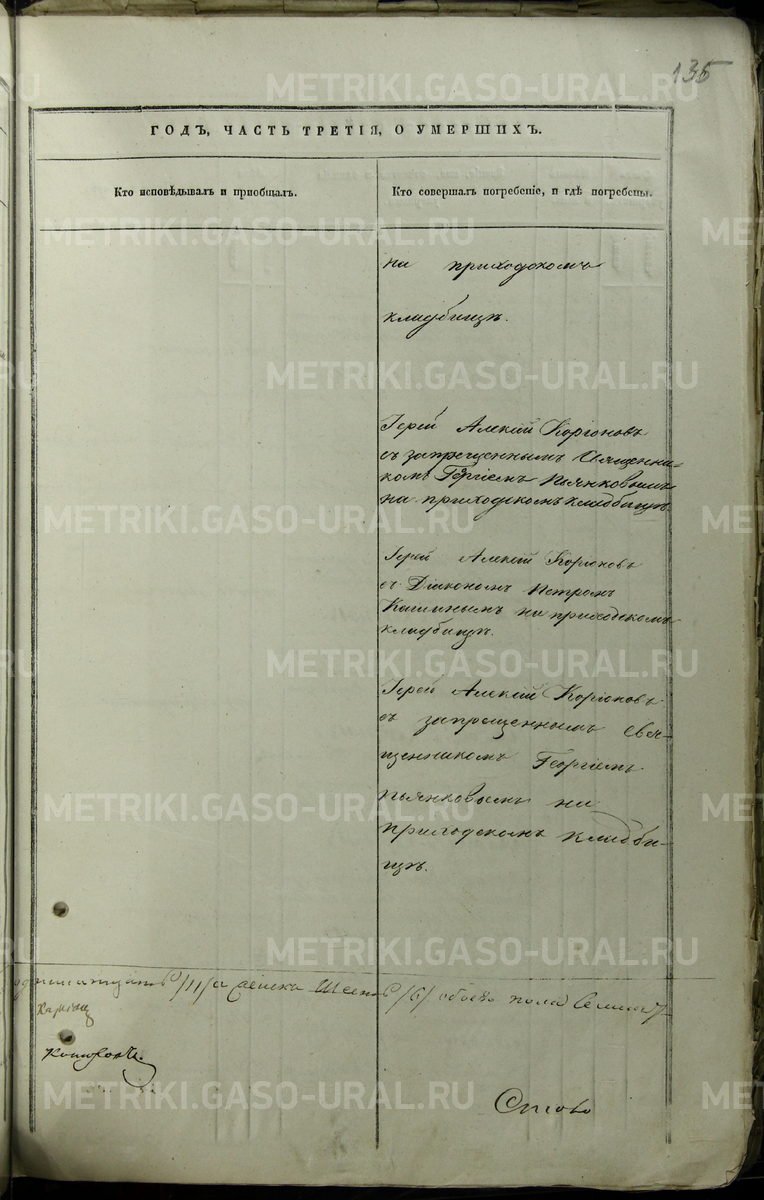 135
ГОДЪ, ЧАСТЬ ТРЕТІЯ, О УМЕРШИХЪ.
Кто исповѣдывалъ и приобщалъ.
Кто совершалъ погребеніе, и гдѣ погребены.
на приходскомъ
кладбищѣ.
Іерей Алексій Коріоновъ
съ запрещеннымъ Священни-
комъ Георгіемъ Пьянковымъ
на приходскомъ кладбищѣ.
Іерей Алексій Коріоновъ
съ Діакономъ Петромъ
Кашинымъ на приходскомъ
кладбищѣ.
Іерей Алексій Коріоновъ
съ запрещеннымъ Свя-
щенникомъ Георгіемъ
Пьянковымъ на
приходскомъ кладби-
щѣ.
/11/ женска /6/ обоего пола
METRIKI.GASO-URAL.RU